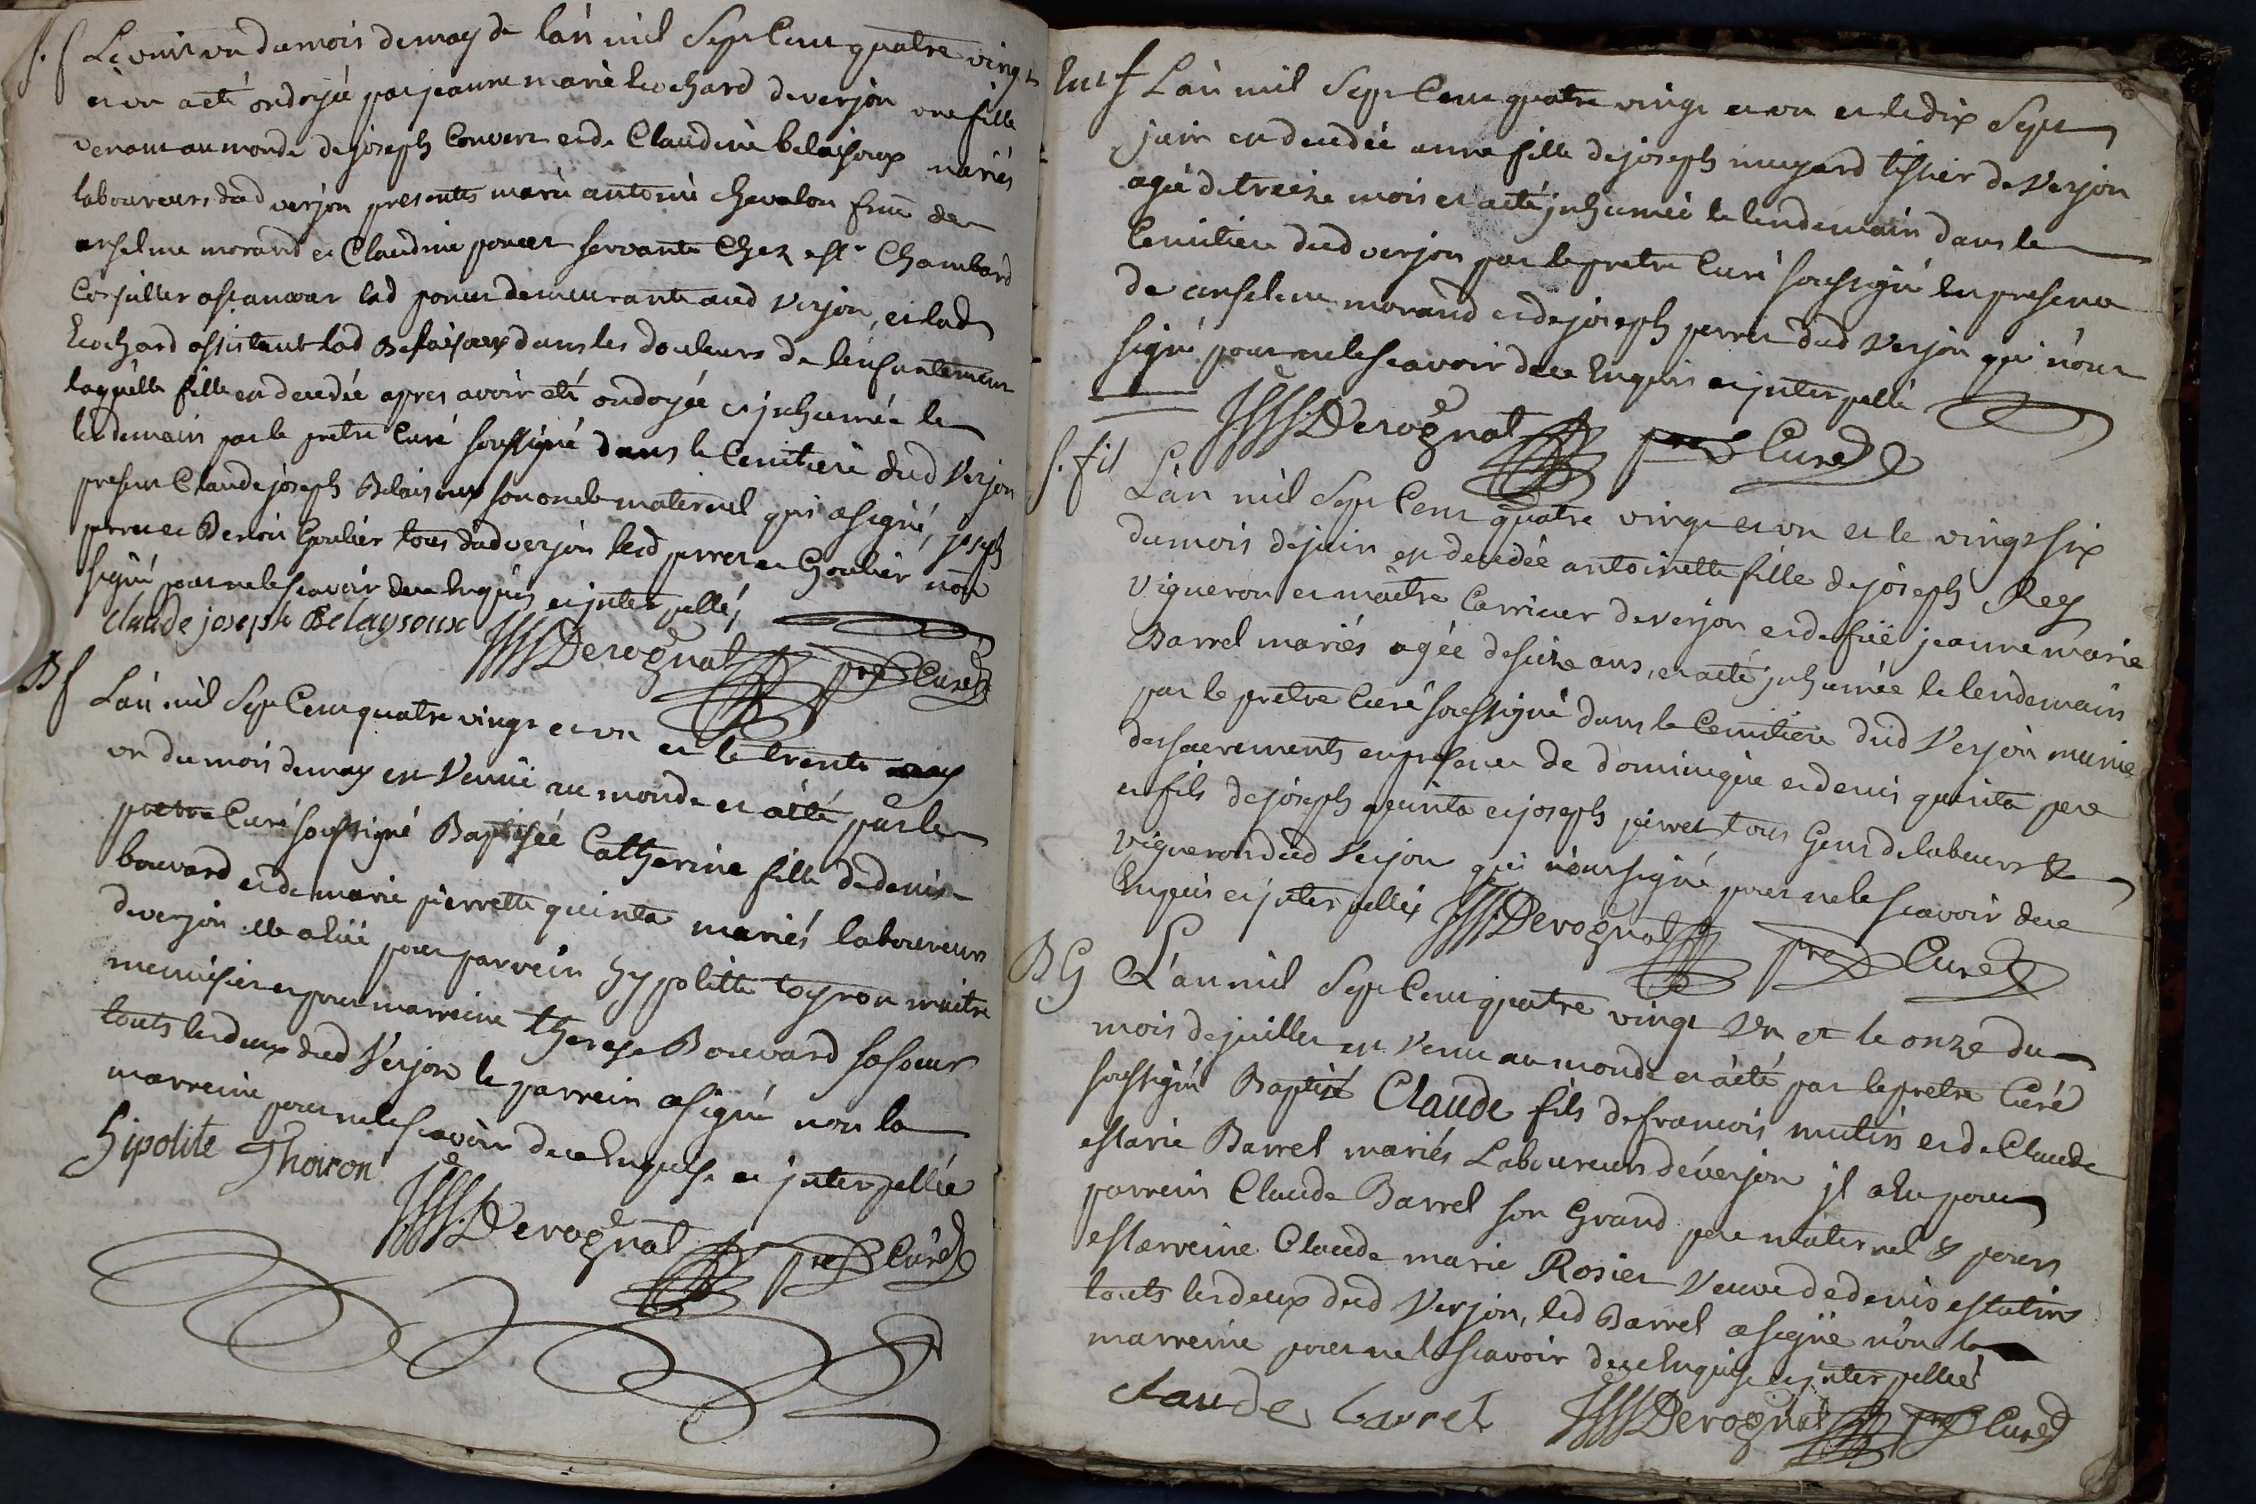 S. f Le vint un du mois de may de l'an mil Sept Cent quatre vingt
et un a eté ondoyée par jeanne marie Cochard de verjon une fille
venant au monde de joseph Convert et de Claudine belaisoux mariés
laboureurs dud verjon presents marie antoine chevalon fme de
anselme morand et Claudine poncet servante Chez Mr Chambard
lad poncet demeurante aud Verjon, et lad
Cochard assistant lad Belaisoux dans les douleurs de lenfantement
laquelle fille est decedée apres avoir eté ondoyée et inhumée le
lendemain par le pretre Curé soussigné dans le Cemitiere dud Verjon
present Claude joseph Belaisoux son oncle maternel qui a signé, joseph
perret et Benoit Goulier tous dud verjon lesd perret et Goulier non
signé pour ne le scavoir de ce enquis et interpellé,
Claude joseph Belaysoux Derognat pre Curé
B f L'an mil Sept Cent quatre vingt et un et le trente
un du mois de may est Venuë au monde et a eté par le
pretre Curé soussigné Baptisée Catherine fille de denis
bouvard et de marie pierrette quinta mariés laboureurs
de verjon elle a eüe pour parrein hypolitte toyron maitre
menuisier et pour marreine therese Bouvard sa soeur
touts les deux dud Verjon le parrein a signé non la
marreine pour ne le scavoir de ce Enquise et interpellée
hipolite Thoiron
Derognat pre Curé
Ent f L'an mil Sept Cent quatre vingt et un et le dix Sept
juin est decedée anne fille de joseph mugard tissier de Verjon
agée de treize mois et a eté inhumée le lendemain dans le
Cemitiere dud verjon par le pretre Curé soussigné En presence
de anselme morand et de joseph perret dud Verjon qui n'ont
signé pour ne le scavoir de ce Enquis et interpellé
Derognat pre Curé
S. fil L'an mil Sept Cent quatre vingt et un et le vingt six
du mois de juin est decedée antoinette fille de joseph Rey
vigneron et maitre Carrieur de verjon et de füe jeanne marie
Barrel mariés agée de seize ans, et a eté inhumée le lendemain
par le pretre Curé soussigné dans le Cemitiere dud Verjon munie
des sacrements en presence de dominique et denis quinta pere
et fils de joseph quinta et joseph perret tous Gens de labeurs &
vigneron dud Verjon qui n'ont signé pour ne le scavoir de ce
Enquis et interpellés Derognat pre Curé
B G L'an mil Sept Cent quatre vingt Un et le onze du
mois de juillet est Venu au monde et a eté par le pretre Curé
soussigné Baptisé Claude fils de francois mutin et de Claude
Marie Barrel mariés Laboureurs de verjon il a Eu pour
parrein Claude Barrel son Grand pere maternel & pour
Marreine Claude marie Rosier Veuve de denis Mutin
touts les deux dud Verjon, led Barrel a signé non la
marreine pour ne le scavoir de ce Enquise et interpellée
Claude barrel Derognat pre Curé